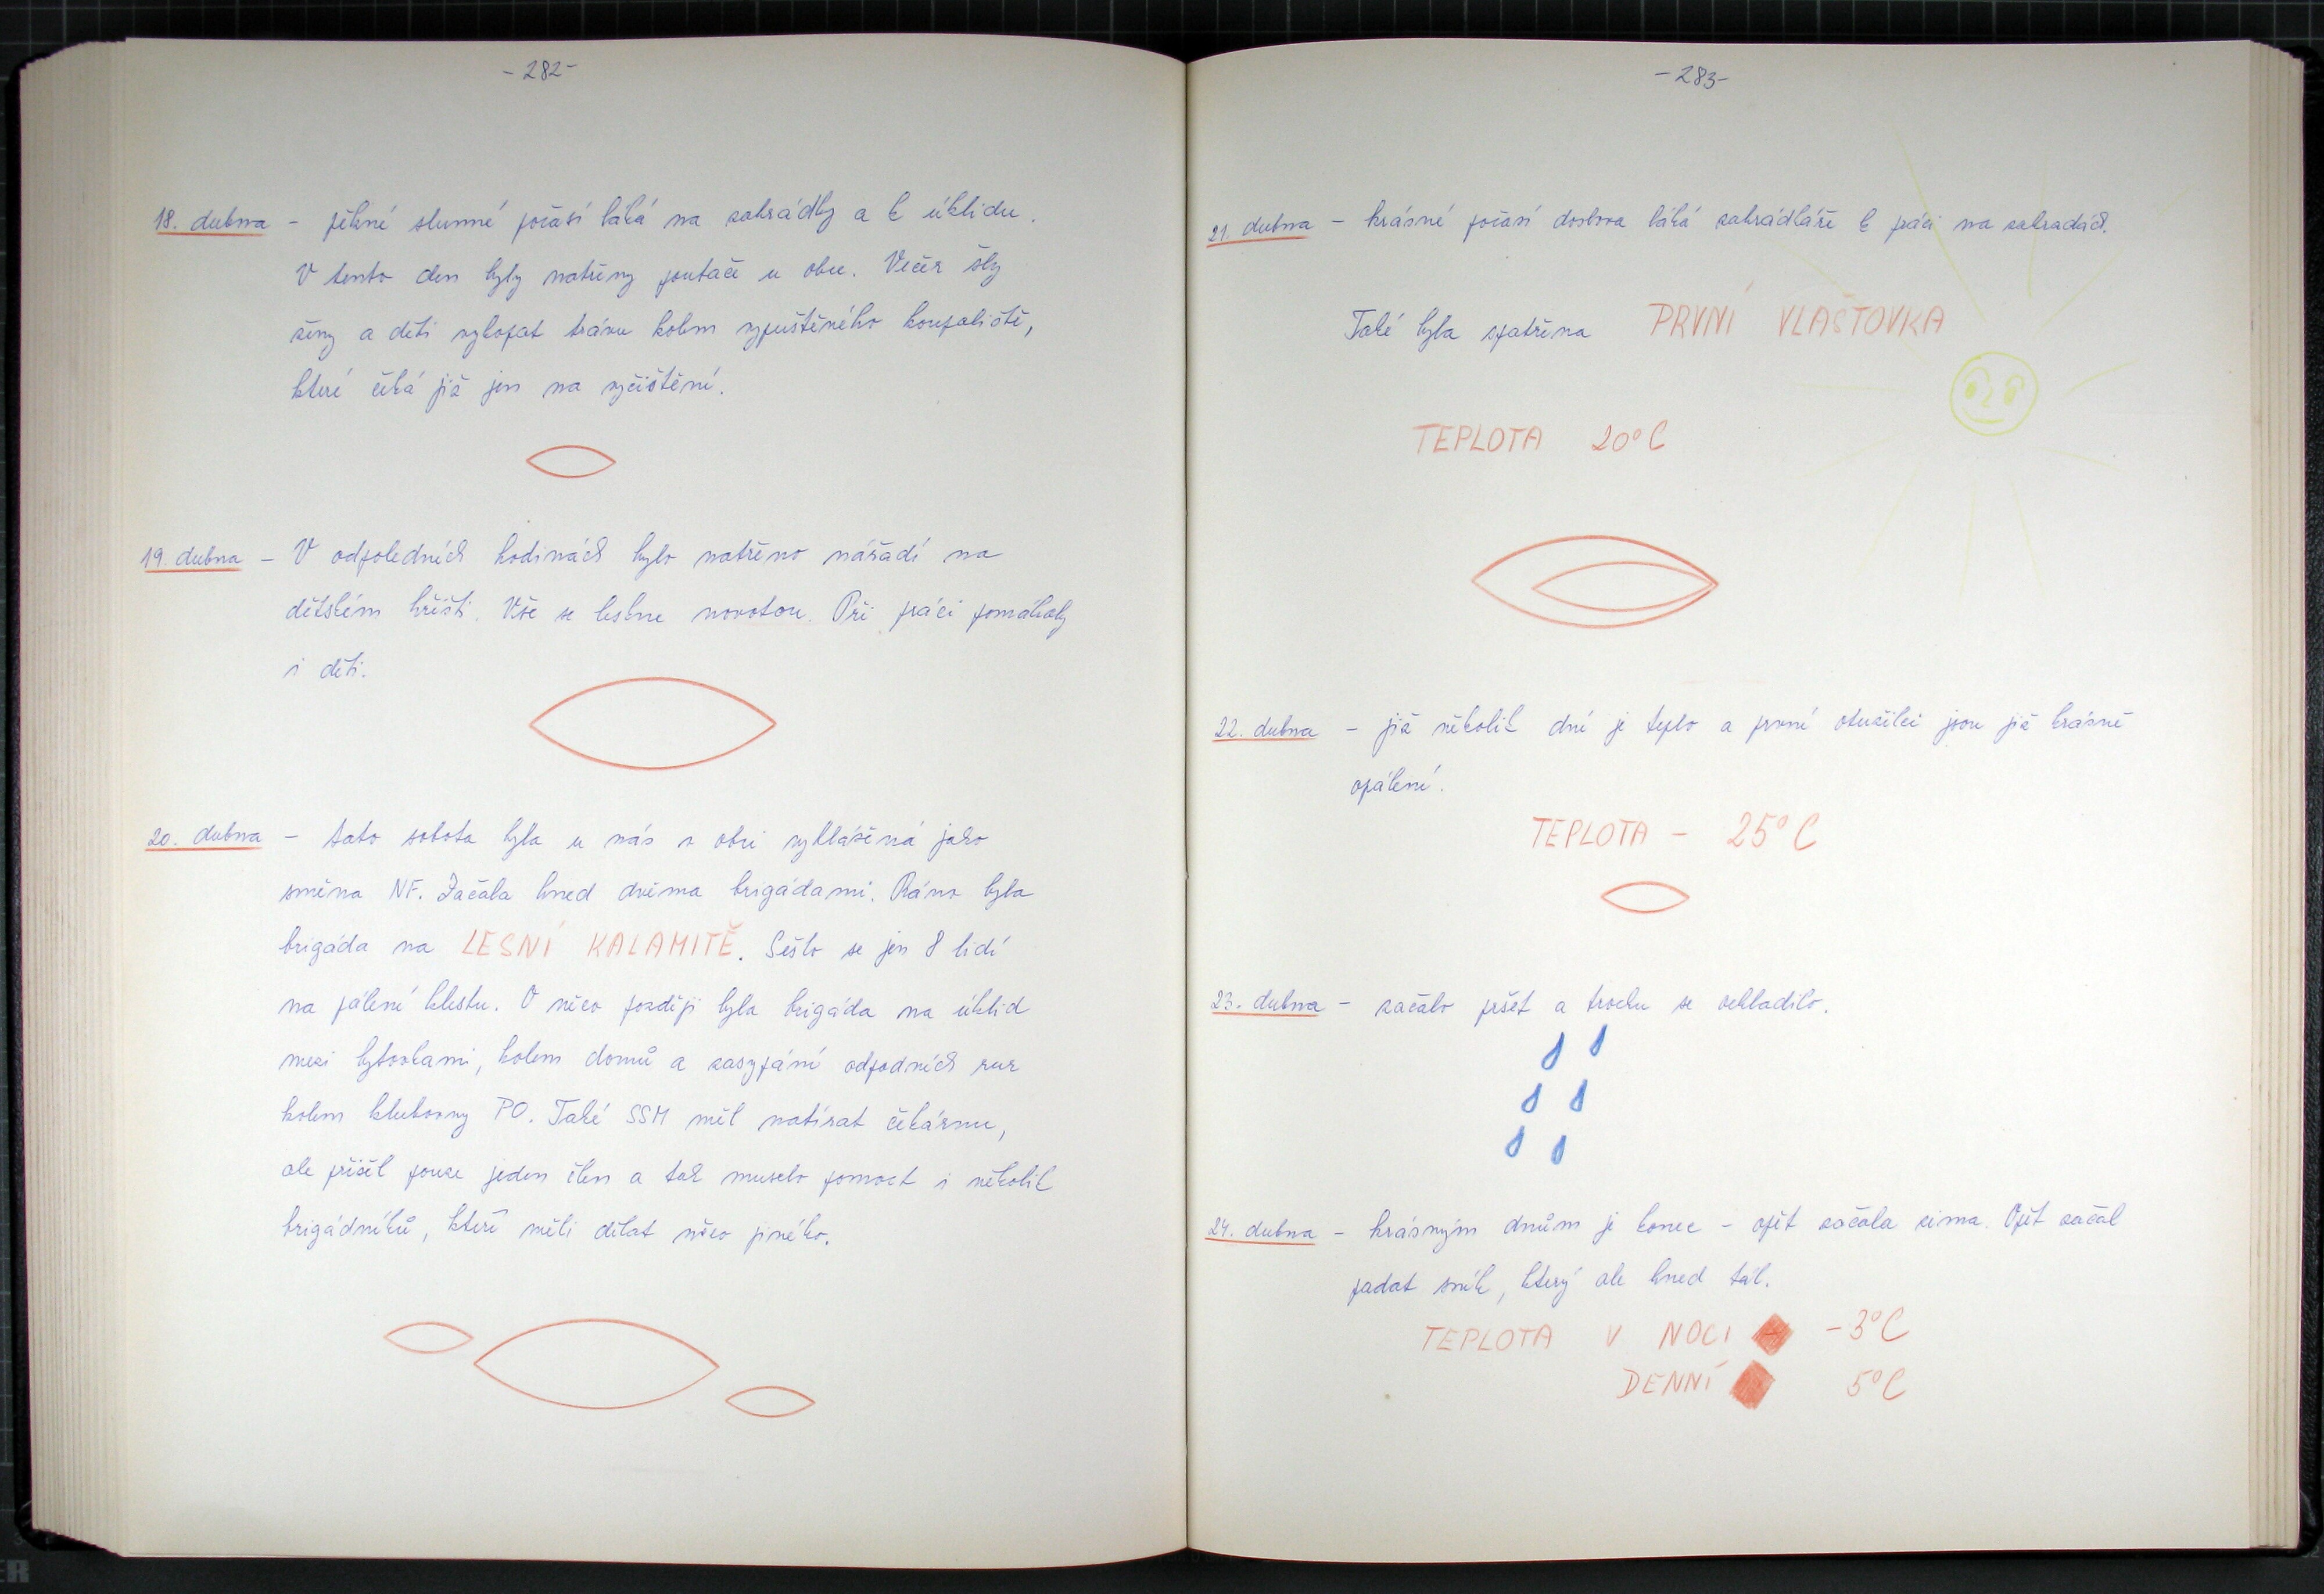 - 282 -
18. dubna - pěkné slunné počasí láká na zahrádky a k úklidu.
V tento den byly natřeny poutače u obce. Večer šly
ženy a děti vykopat trávu kolem vypuštěného koupaliště,
které čeká již jen na vyčištění.
19. dubna - V odpoledních hodinách bylo natřeno nářadí na
dětském hřišti. Vše se leskne novotou. Při práci pomáhaly
i děti.
20. dubna - tato sobota byla u nás v obci vyhlášená jako
směna NF. Začala hned dvěma brigádami. Ráno byla
brigáda na LESNÍ KALAMITĚ. Sešlo se jen 8 lidí
na pálení klestu. O něco později byla brigáda na úklid
mezi bytovkami, kolem domů a zasypání odpadních rur
kolem klubovny PO. Také SSM měl natírat čekárnu,
ale přišel pouze jeden člen a tak muselo pomoct i několik
brigádníků, kteří měli dělat něco jiného.
- 283 -
21. dubna - krásné počasí doslova láká zahrádkáře k práci na zahradách.
Také byla spatřena PRVNÍ VLAŠTOVKA
TEPLOTA 20°C
22. dubna - již několik dní je teplo a první otužilci jsou již krásně
opálení.
TEPLOTA - 25°C
23. dubna - začalo pršet a trochu se ochladilo.
24. dubna - krásným dnům je konec - opět začala zima. Opět začal
padat sníh, který ale hned tál.
TEPLOTA V NOCI -3°C
DENNÍ 5°C